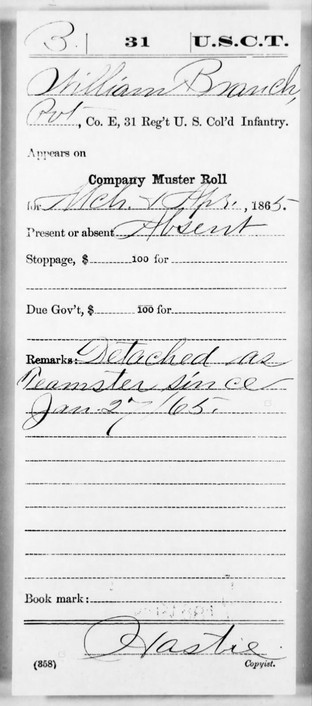 B. | 31 | U.S.C.T.
William Branch,
Pvt., Co. E, 31 Reg't U. S. Col'd Infantry.
Appears on
Company Muster Roll
for Mch. & Apr., 1865.
Present or absent Absent
Stoppage, $ 100 for
Due Gov't, $ 100 for
Remarks: Detached as
Teamster since
Jan. 27/65.
Book mark:
Hastie
(358) Copyist.